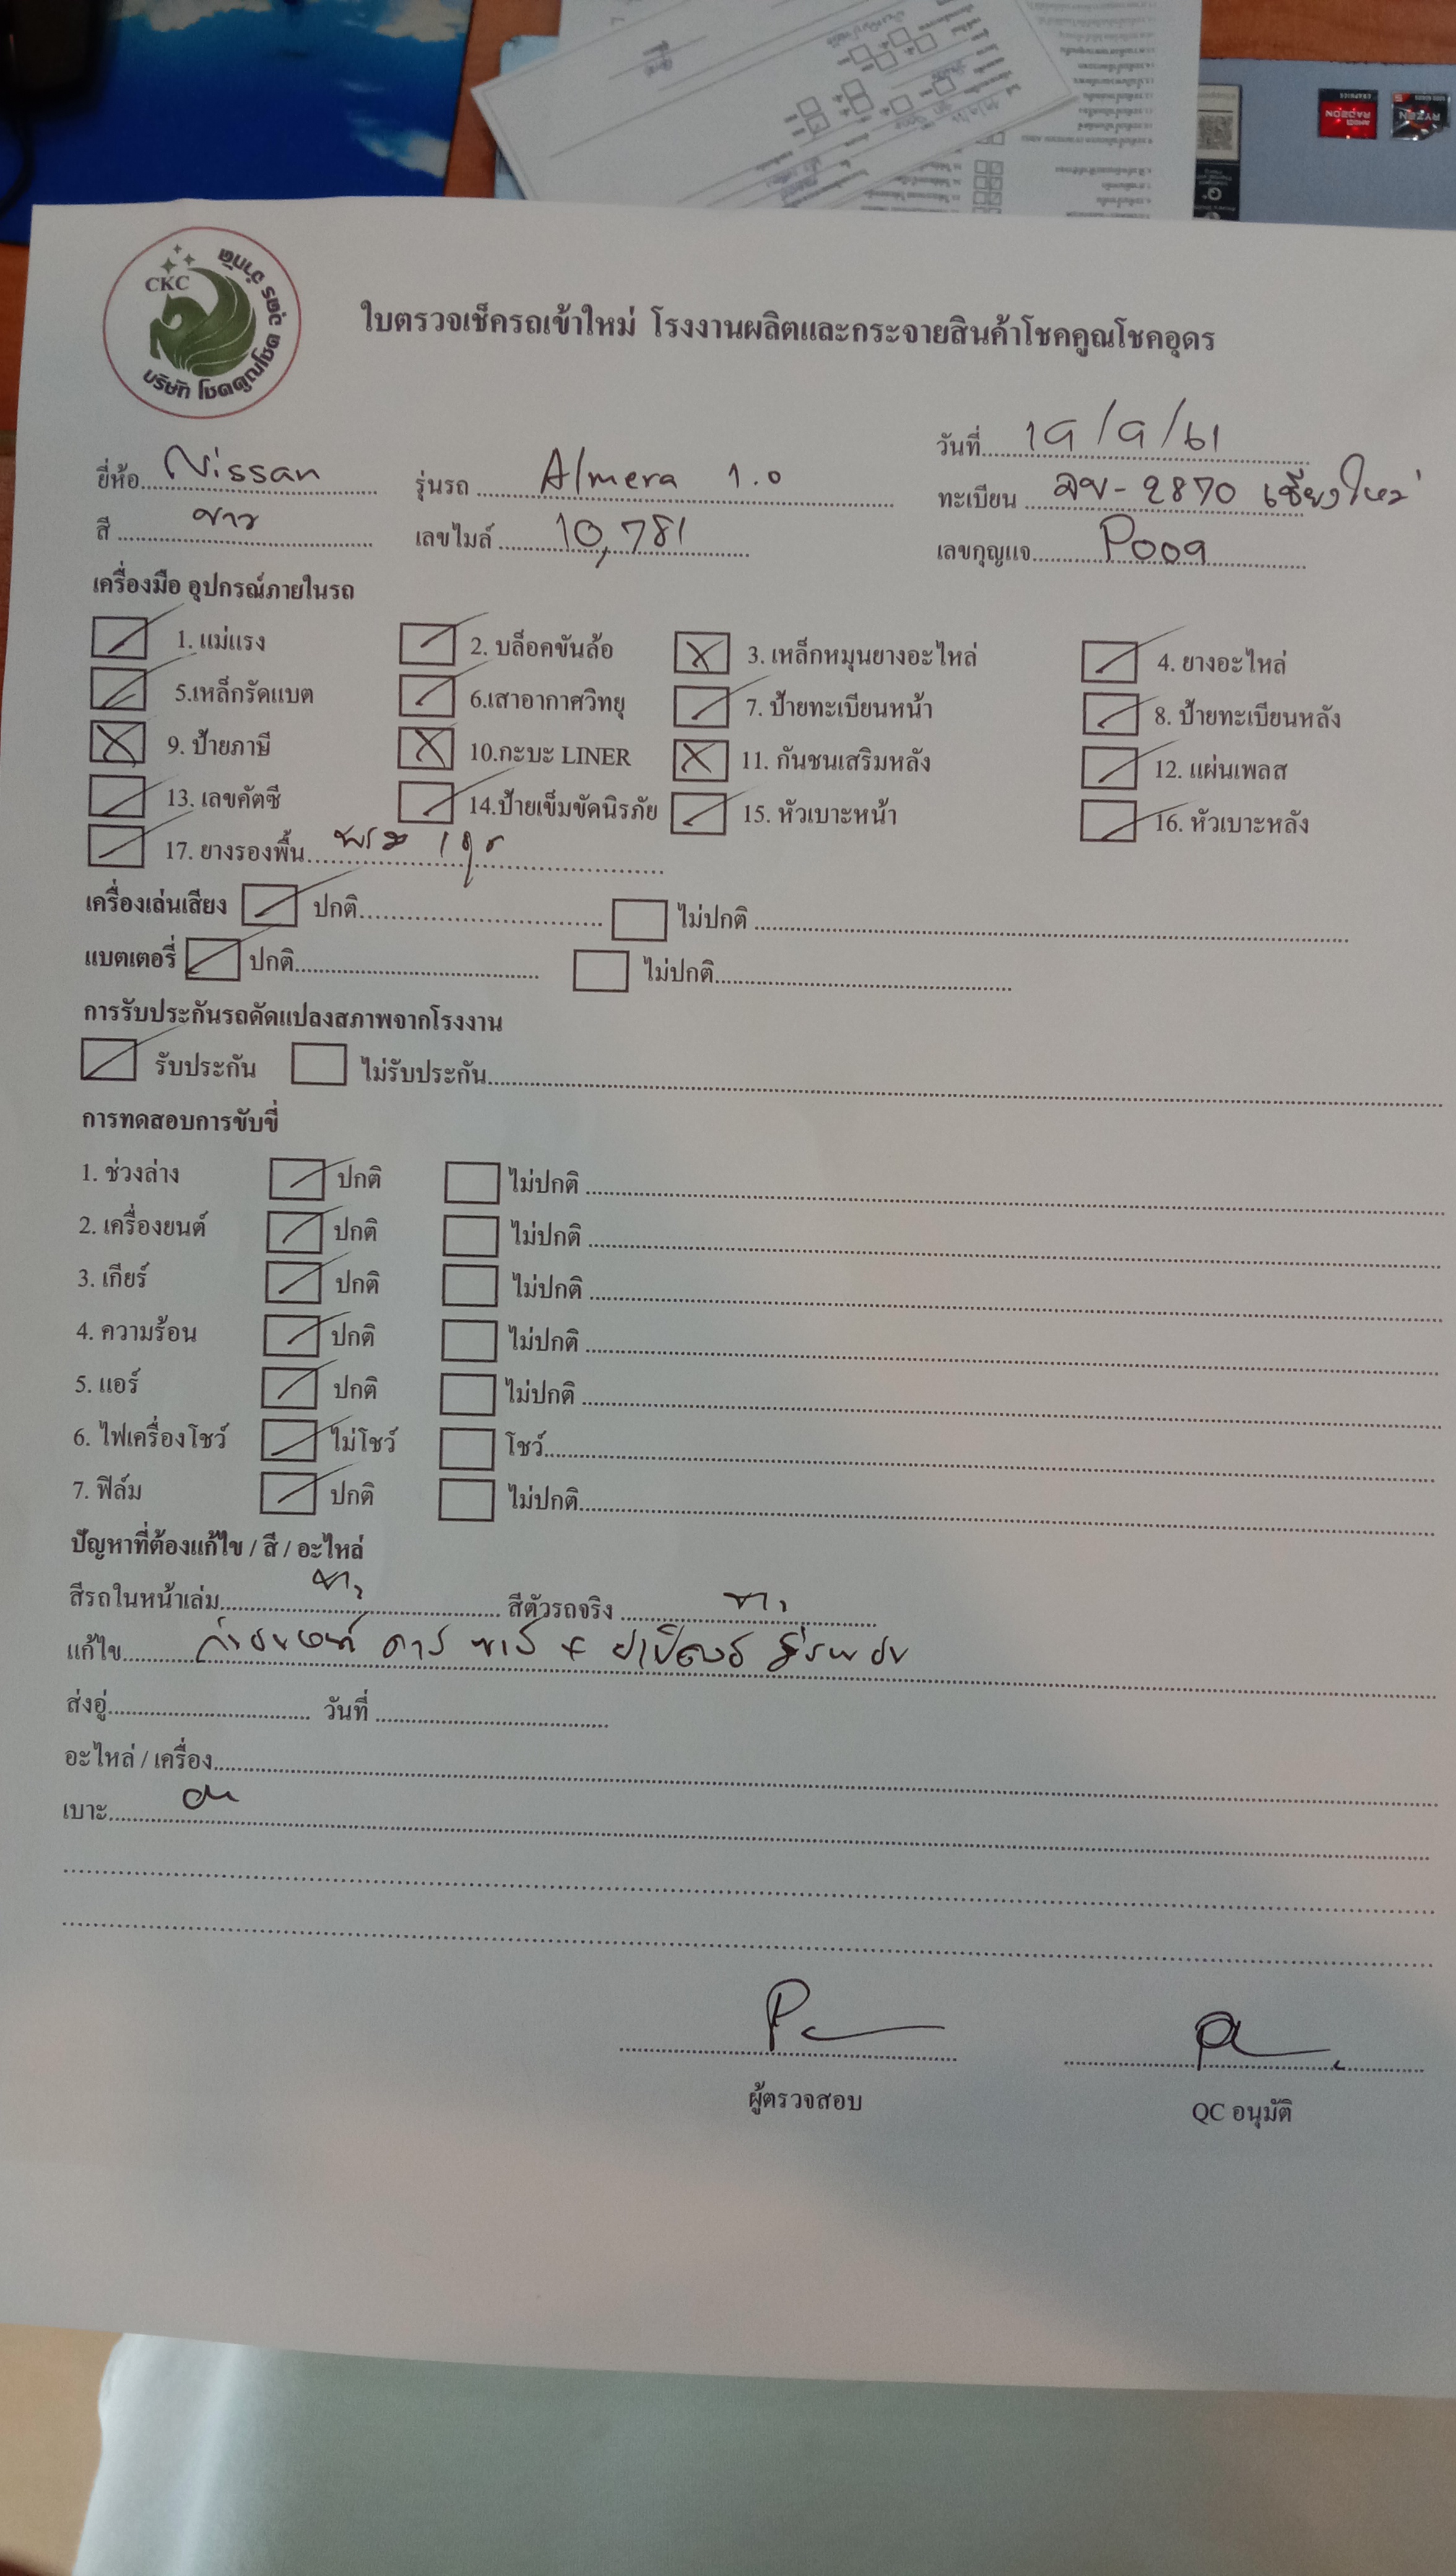 CKC
บริษัท โชคคูณโชค อุดร จำกัด
ใบตรวจเช็ครถเข้าใหม่ โรงงานผลิตและกระจายสินค้าโชคคูณโชคอุดร
วันที่ 19/9/61
ยี่ห้อ Nissan รุ่นรถ Almera 1.0 ทะเบียน - 2870 เชียงใหม่
สี ขาว เลขไมล์ 10,781 เลขกุญแจ P009
เครื่องมือ อุปกรณ์ภายในรถ
1. แม่แรง 2. บล็อคขันล้อ 3. เหล็กหมุนยางอะไหล่ 4. ยางอะไหล่
5.เหล็กรัดแบต 6.เสาอากาศวิทยุ 7. ป้ายทะเบียนหน้า 8. ป้ายทะเบียนหลัง
9. ป้ายภาษี 10.กะบะ LINER 11. กันชนเสริมหลัง 12. แผ่นเพลส
13. เลขคัตซี 14.ป้ายเข็มขัดนิรภัย 15. หัวเบาะหน้า 16. หัวเบาะหลัง
17. ยางรองพื้น
เครื่องเล่นเสียง ปกติ ไม่ปกติ
แบตเตอรี่ ปกติ ไม่ปกติ
การรับประกันรถดัดแปลงสภาพจากโรงงาน
รับประกัน ไม่รับประกัน
การทดสอบการขับขี่
1. ช่วงล่าง ปกติ ไม่ปกติ
2. เครื่องยนต์ ปกติ ไม่ปกติ
3. เกียร์ ปกติ ไม่ปกติ
4. ความร้อน ปกติ ไม่ปกติ
5. แอร์ ปกติ ไม่ปกติ
6. ไฟเครื่องโชว์ ไม่โชว์ โชว์
7. ฟิล์ม ปกติ ไม่ปกติ
ปัญหาที่ต้องแก้ไข / สี / อะไหล่
สีรถในหน้าเล่ม ขาว สีตัวรถจริง ขาว
แก้ไข
ส่งอู่ วันที่
อะไหล่ / เครื่อง
เบาะ
ผู้ตรวจสอบ QC อนุมัติ
RADEON
RYZEN